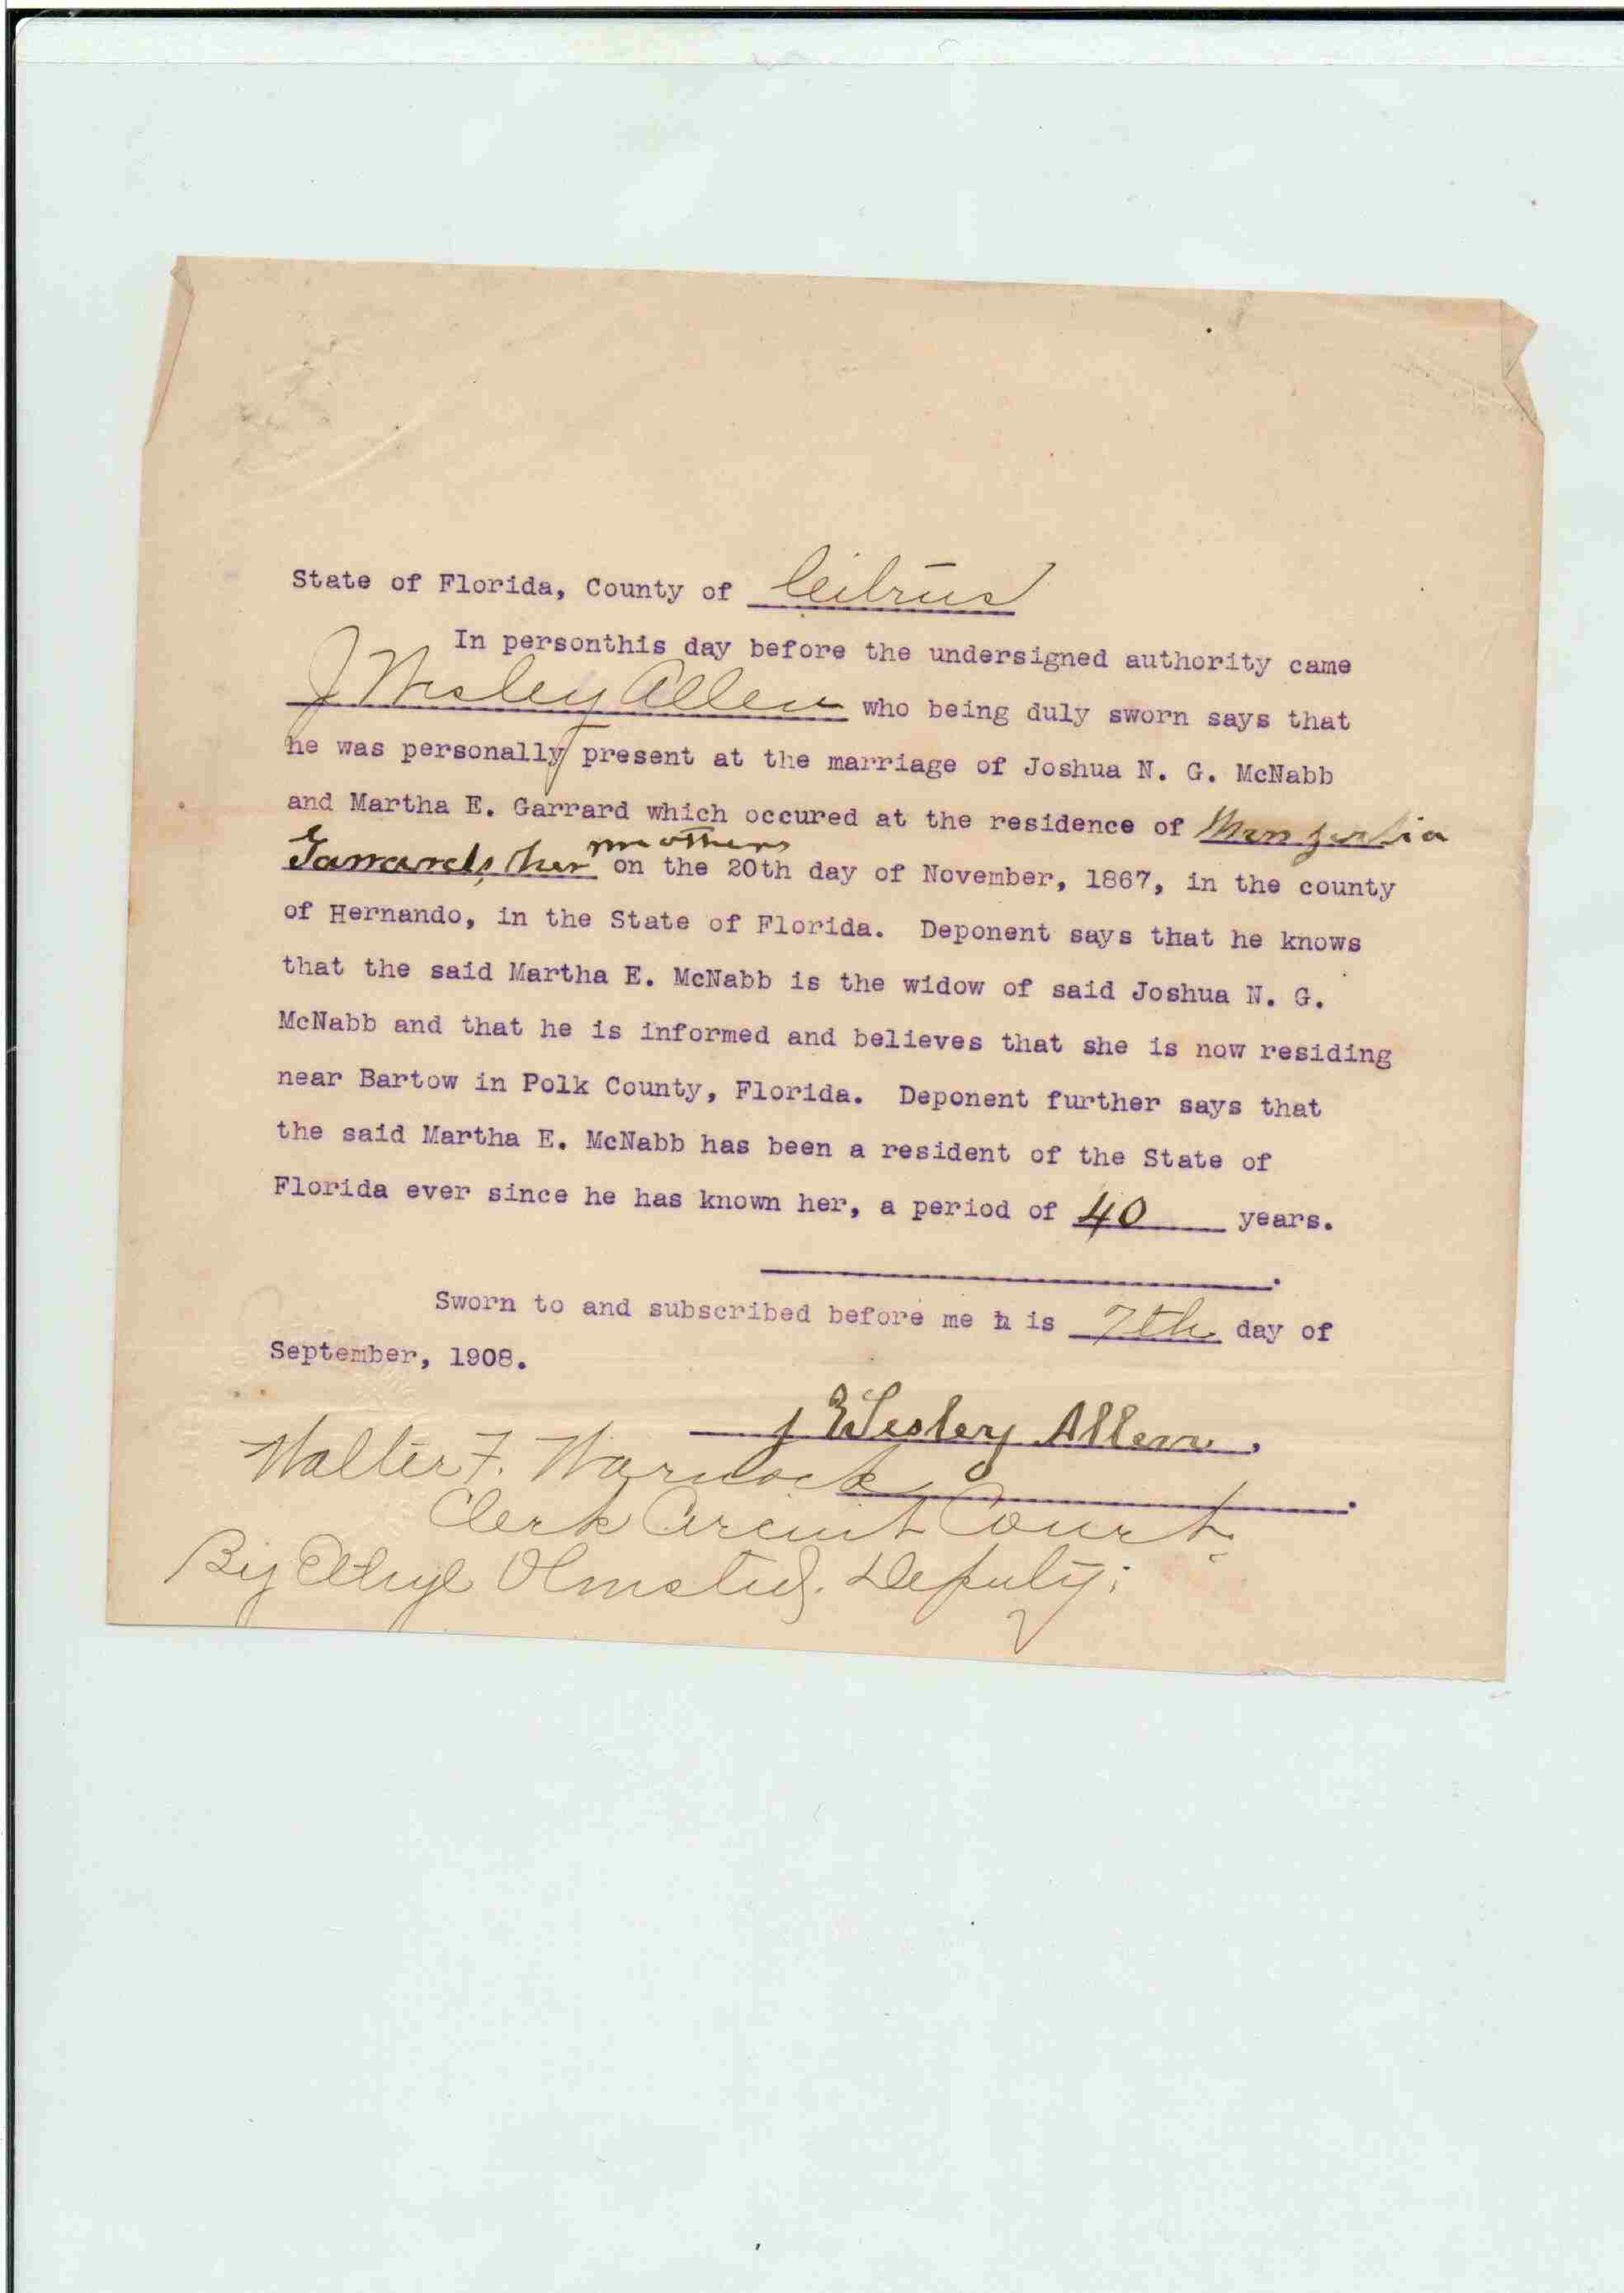 State of Florida, County of Citrus
In personthis day before the undersigned authority came
J Wesley Allen who being duly sworn says that
he was personally present at the marriage of Joshua N. G. McNabb
and Martha E. Garrard which occured at the residence of
mothers
Garrards, her on the 20th day of November, 1867, in the county
of Hernando, in the State of Florida. Deponent says that he knows
that the said Martha E. McNabb is the widow of said Joshua N. G.
McNabb and that he is informed and believes that she is now residing
near Bartow in Polk County, Florida. Deponent further says that
the said Martha E. McNabb has been a resident of the State of
Florida ever since he has known her, a period of 40 years.
Sworn to and subscribed before me h is 7th day of
September, 1908.
J Wesley Allen.
Walter F. Warnock
Clerk Circuit Court.
By Ethyl Olmsted. Deputy.